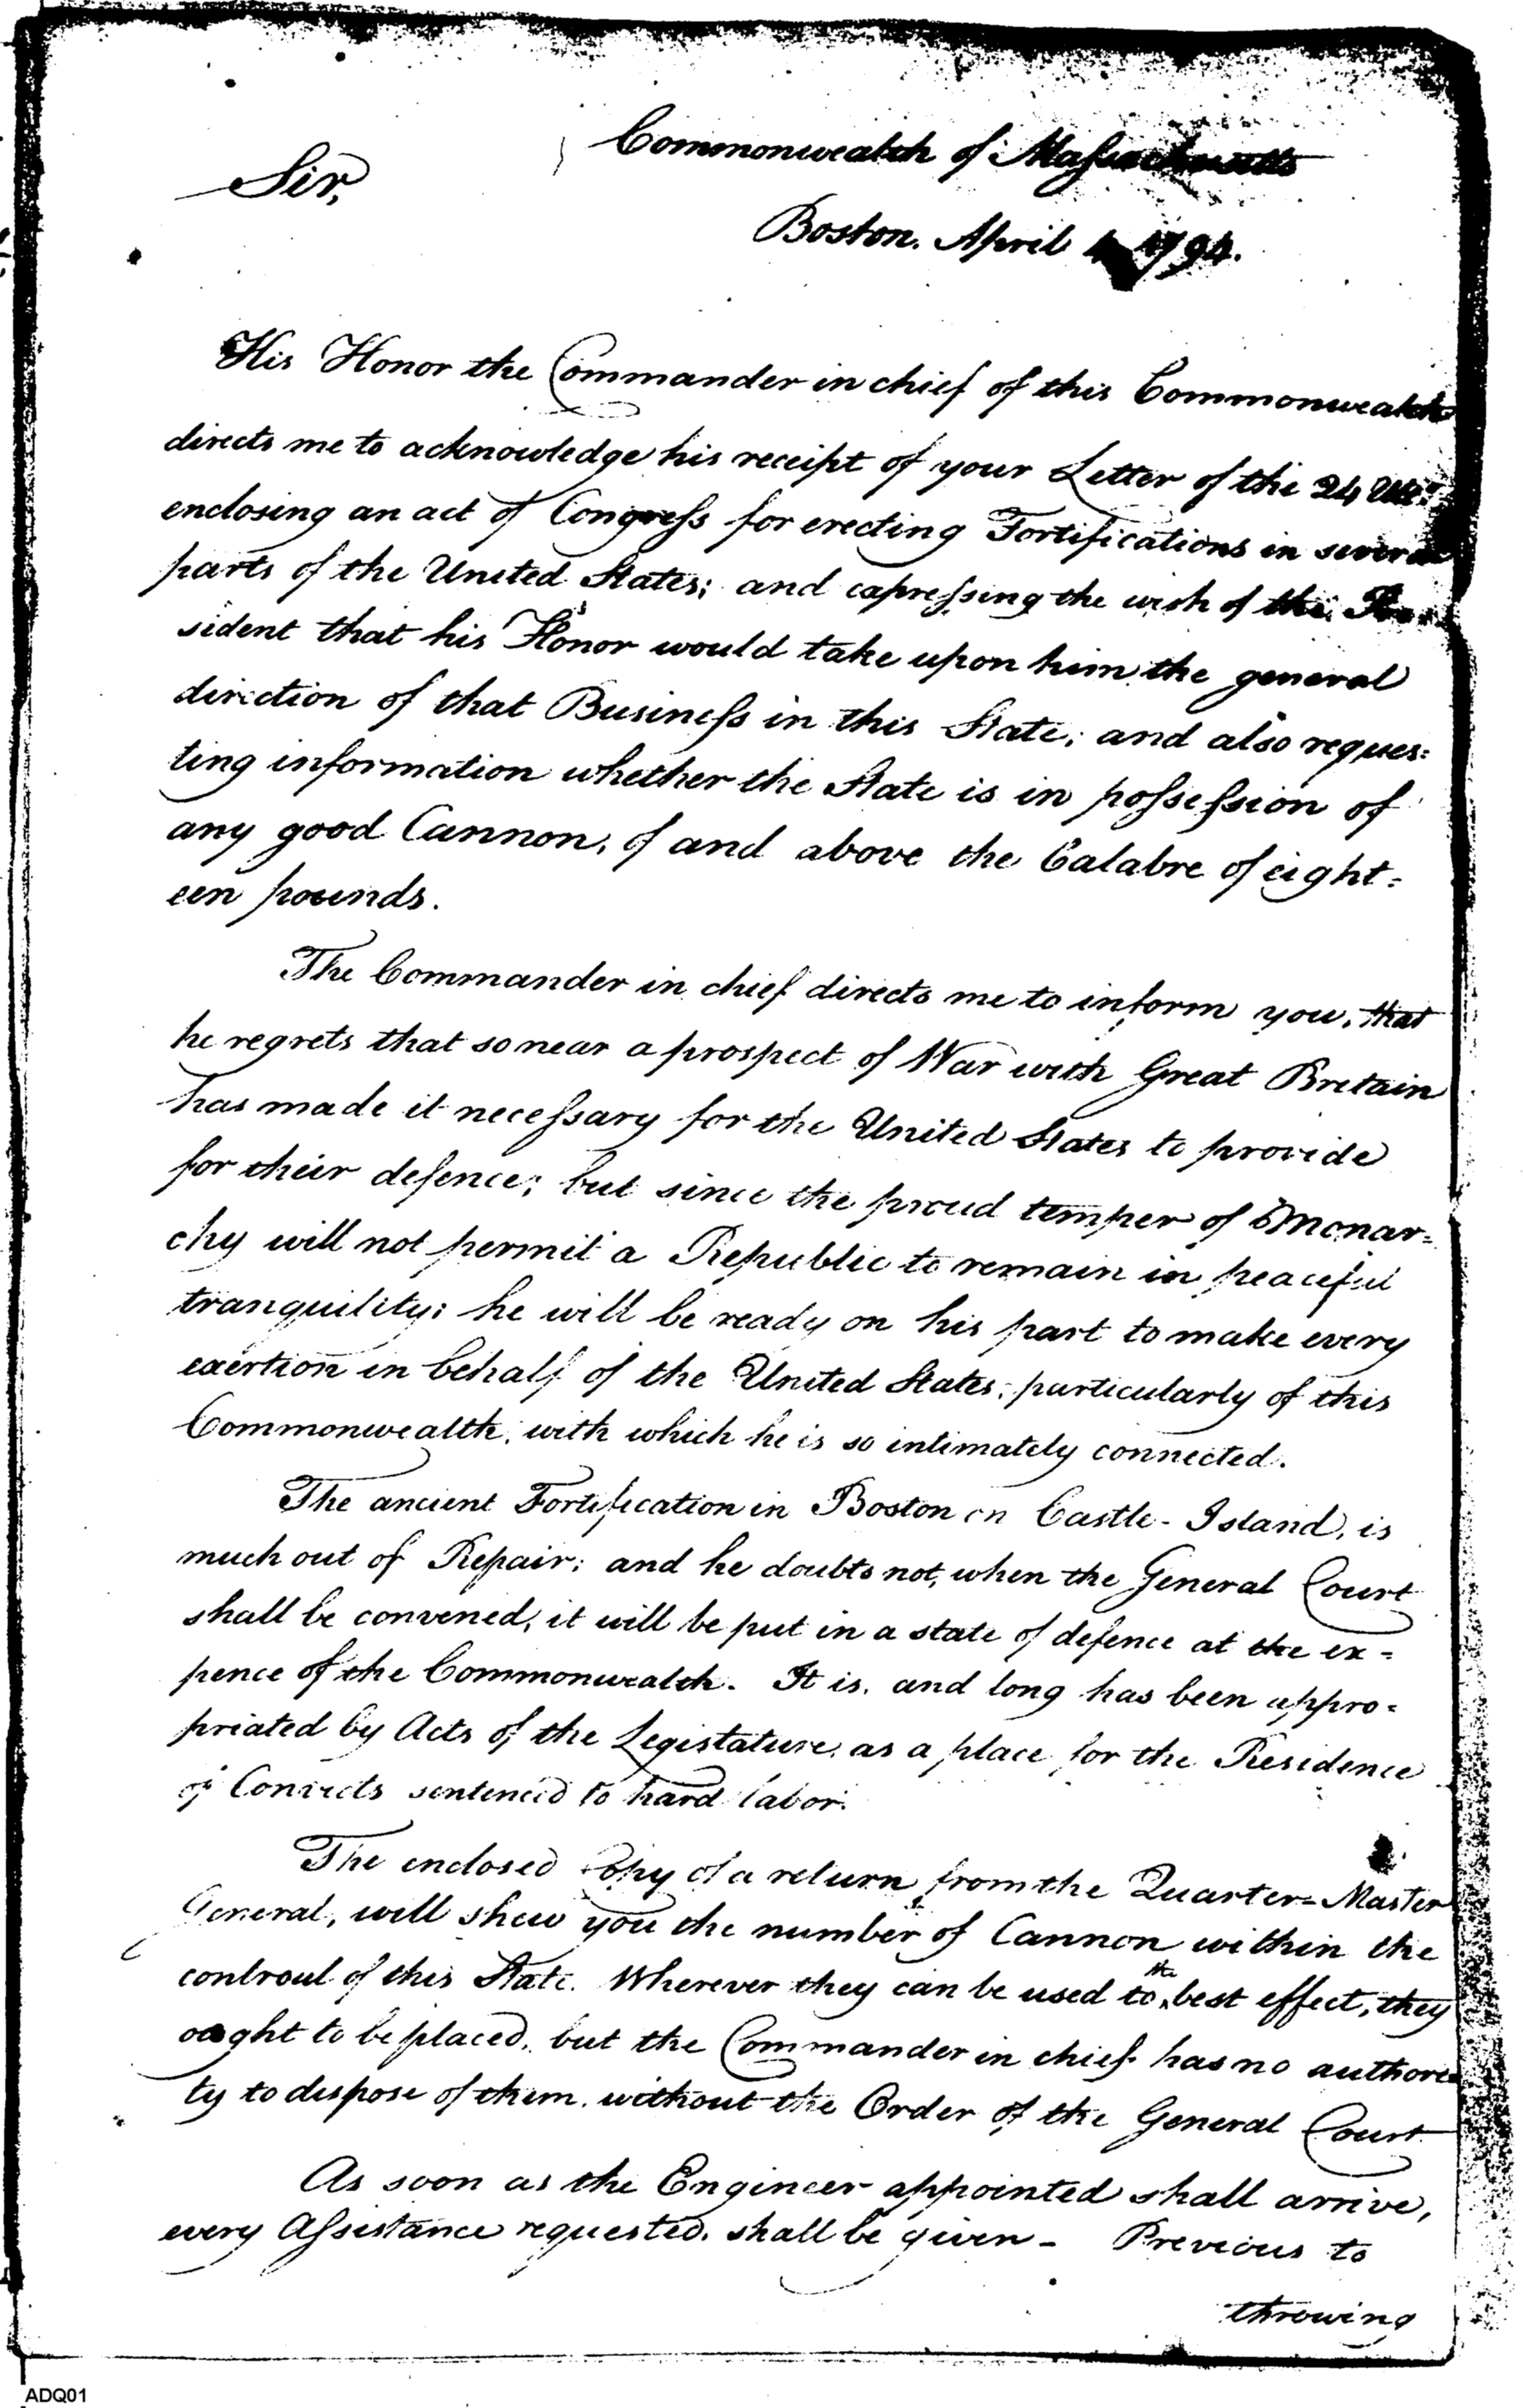 Commonwealth of Massachusetts
Sir,
Boston. April 1794.
His Honor the Commander in chief of this Commonwealth
directs me to acknowledge his receipt of your Letter of the 24 Ult.
enclosing an act of Congress for erecting Fortifications in several
parts of the United States; and expressing the wish of the Pre-
sident that his Honor would take upon him the general
direction of that Business in this State; and also reques=
ting information whether the State is in possession of
any good Cannon, of and above the Calabre of eight=
een pounds.
The Commander in chief directs me to inform you, that
he regrets that so near a prospect of War with Great Bretain
has made it necessary for the United States to provide
for their defence; but since the proud temper of Monar=
chy will not permit a Republic to remain in peaceful
tranquility; he will be ready on his part to make every
exertion in behalf of the United States; particularly of this
Commonwealth, with which he is so intimately connected.
The ancient Fortification in Boston on Castle-Island, is
much out of Repair; and he doubts not, when the General Court
shall be convened, it will be put in a state of defence at the ex=
pence of the Commonwealth. It is, and long has been appro=
priated by Acts of the Legistature, as a place for the Residence
of Convicts sentenced to hard labor.
The enclosed Copy of a return from the Quarter=Master
General, will shew you the number of Cannon within the
controul of this State. Wherever they can be used to the best effect, they
ought to be placed, but the Commander in chief has no authori
ty to dispose of them, without the Order of the General Court
As soon as the Engineer appointed shall arrive,
every Assistance requested, shall be given - Previous to
throwing
ADQ01